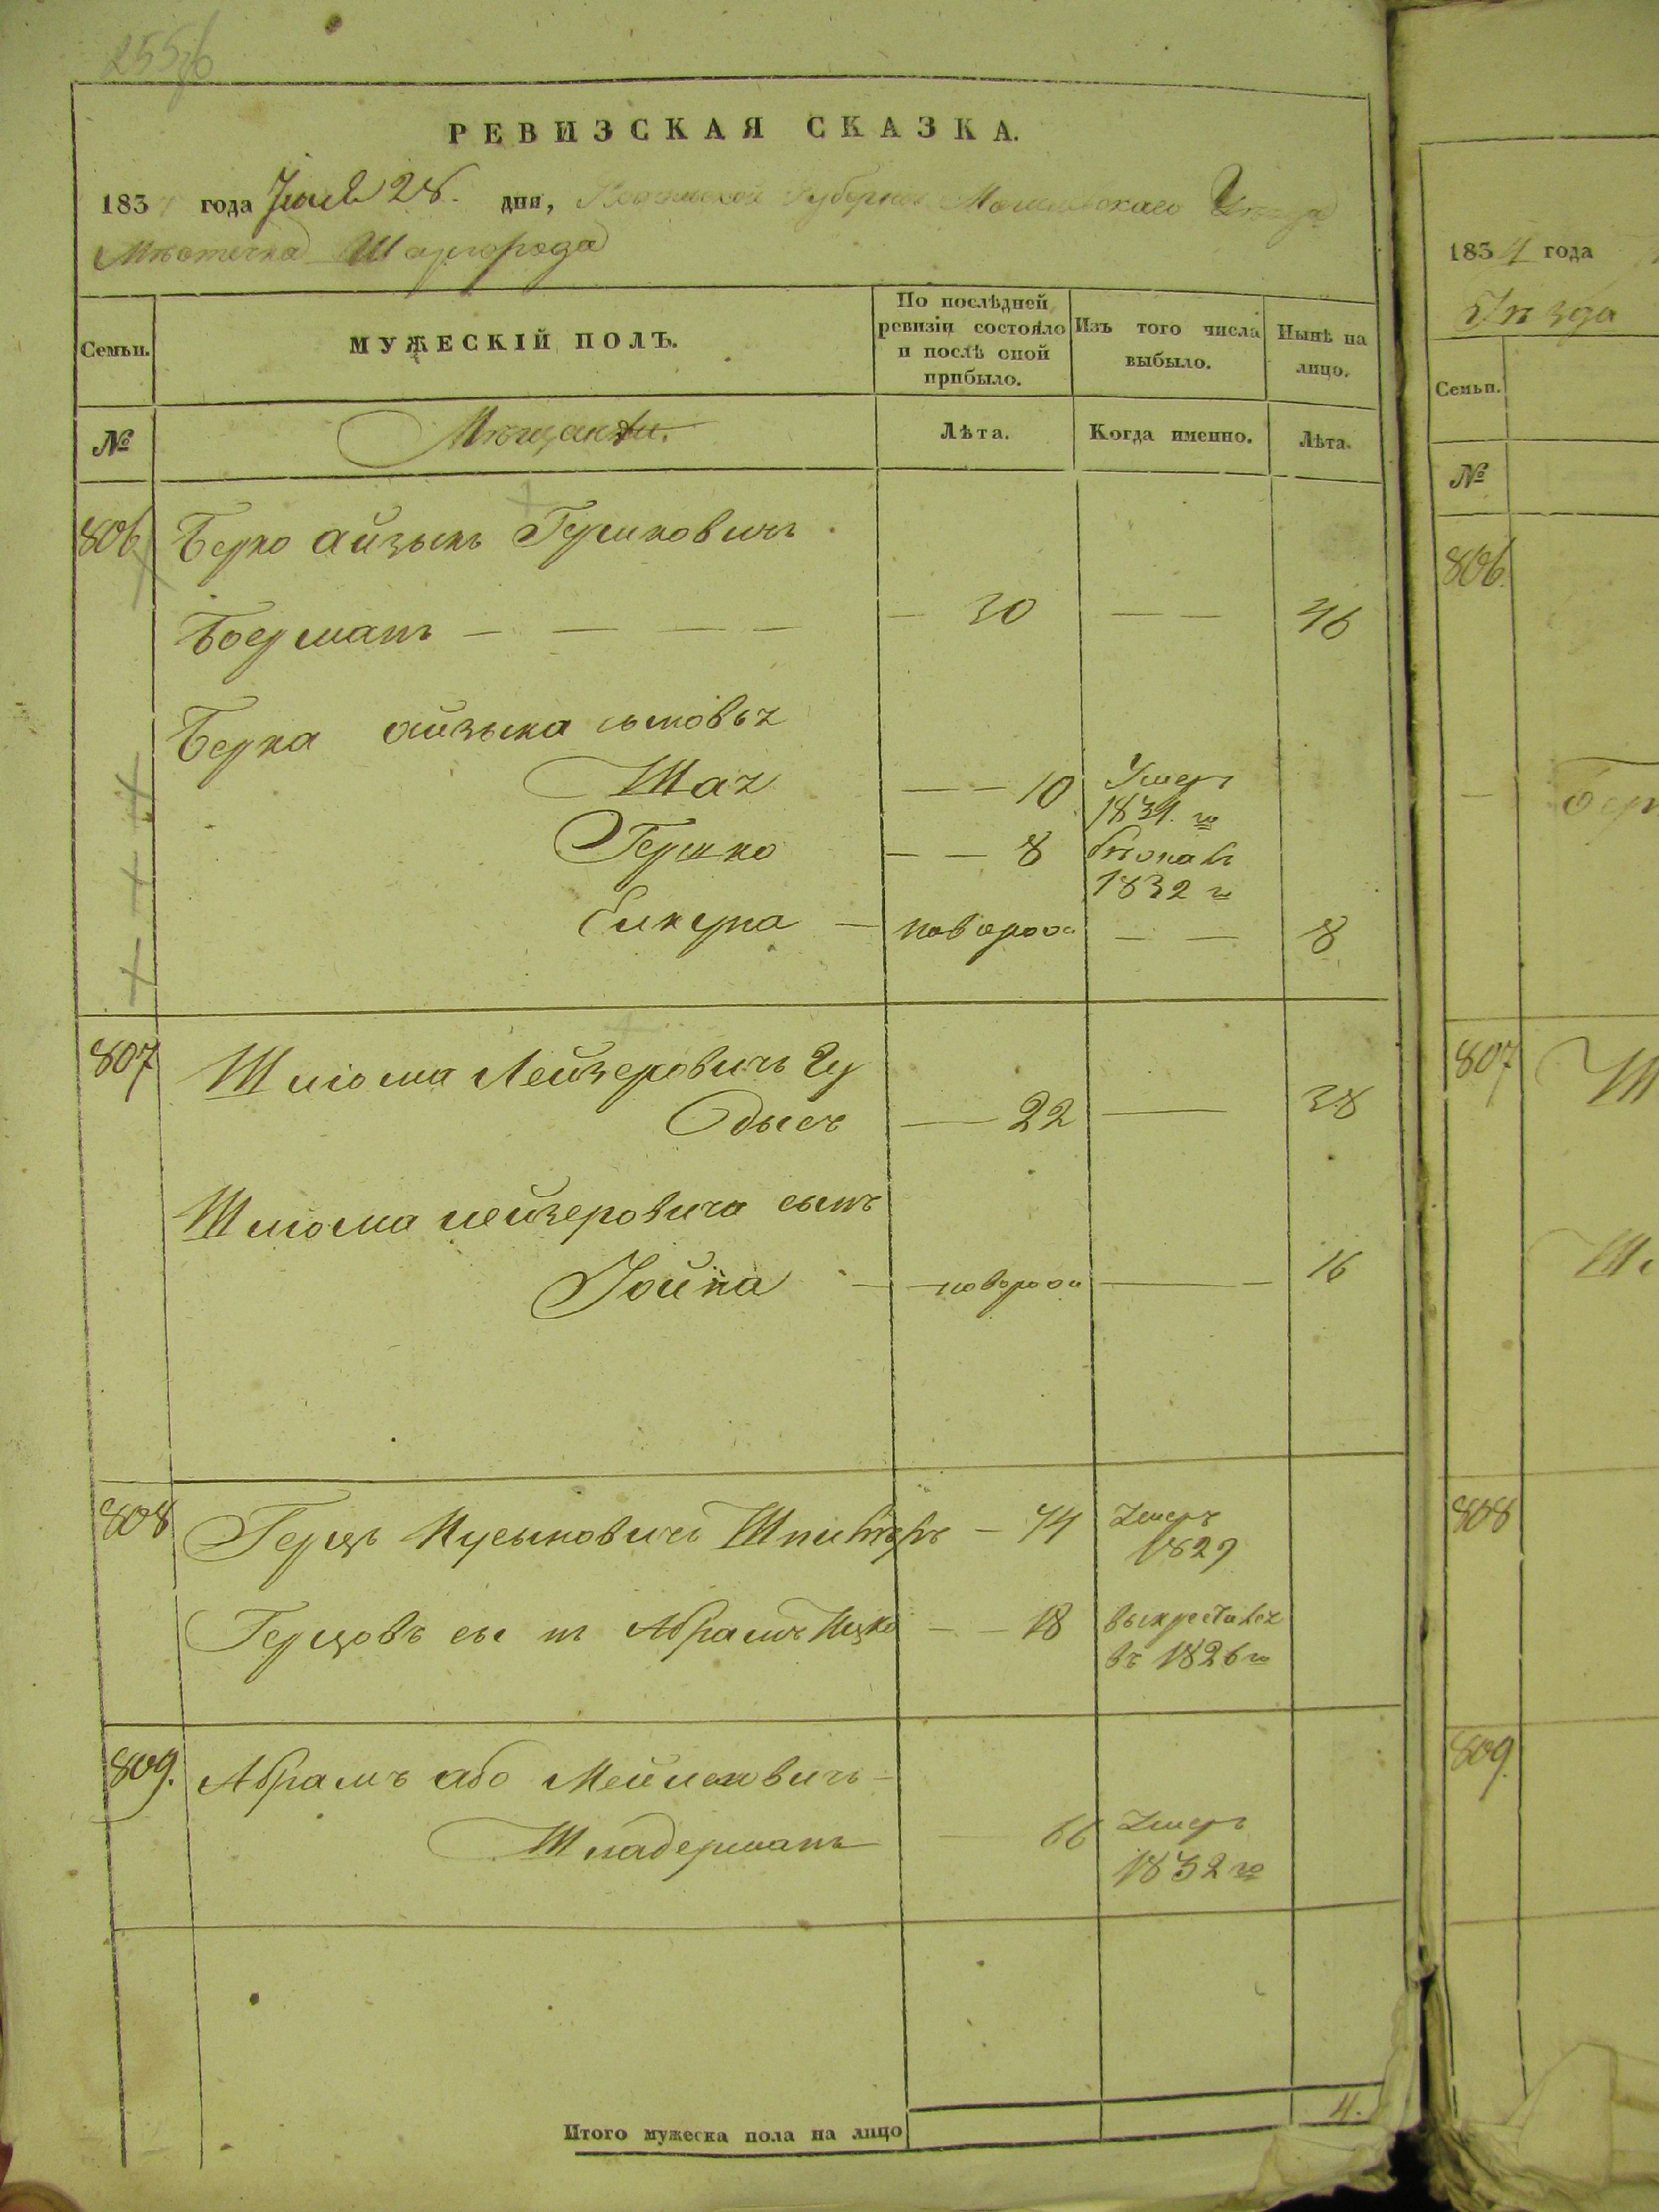 255об
РЕВИЗСКАЯ СКАЗКА.
183 года 28. дня, Подольской Губерніи Могилевскаго Уѣзда
Мѣстечка Шаргорода
Семьи.
МУЖЕСКІЙ ПОЛЪ.
По послѣдней ревизіи состояло и послѣ оной прибыло.
Изъ того числа выбыло.
Нынѣ на лицо.
№
Мѣщане.
Лѣта.
Когда именно.
Лѣта.
806 Берко Айзыкъ Гершковичъ
Боерманъ — — — — — 30 — — 46
Берка Айзыка сыновья
— — 10 Умеръ
1831 го
Гершко — — 8
1832 го
— новорож — — 8
807 Шлiома Лейзеровичъ Гу
— 22 — 38
Шлiома лейзеровича сынъ
Іойна — новорож — 16
808 Герцъ Нусыновичъ — 44 Умеръ
1829
Герцовъ сынъ Абрамъ Ицко — — 18
въ 1826 го
809. Абрамъ або Мейлековичъ —
Шпадерманъ — 66 Умеръ
1832 го
Итого мужеска пола на лицо 4.
1834 года
Уѣзда
Семьи.
№
806.
807
808
809.